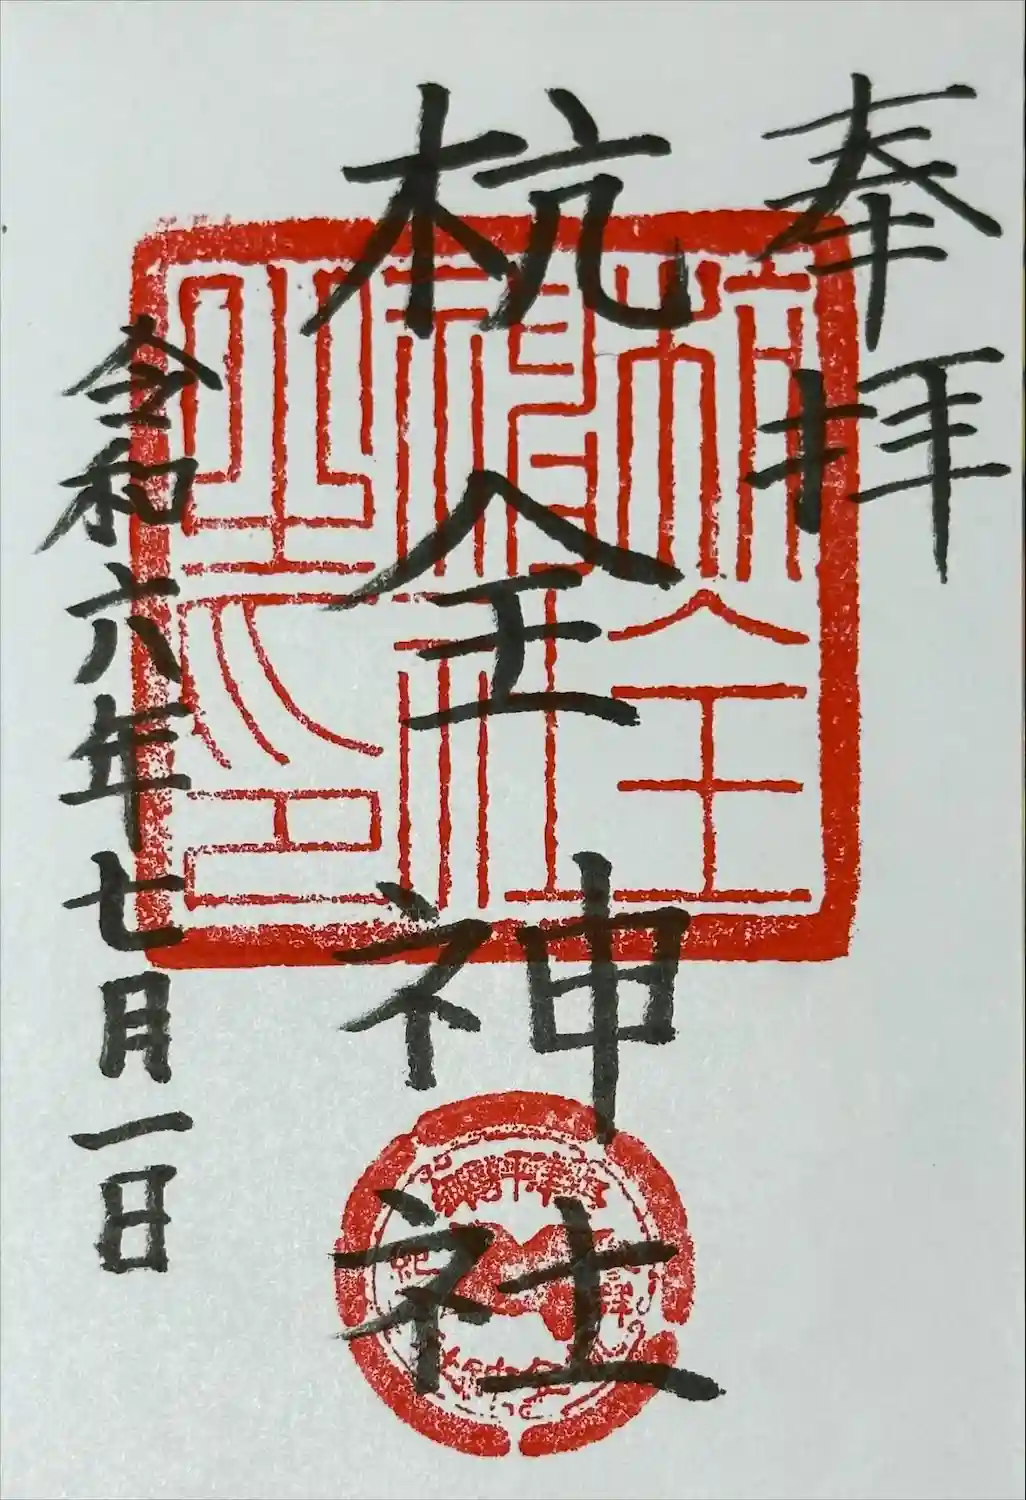 奉拝
杭全神社
令和六年七月一日
杭全神社之印